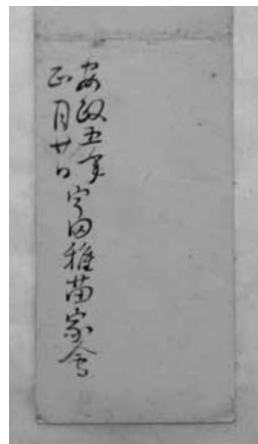 安政五年
正月廿日
宇田雅苗家會